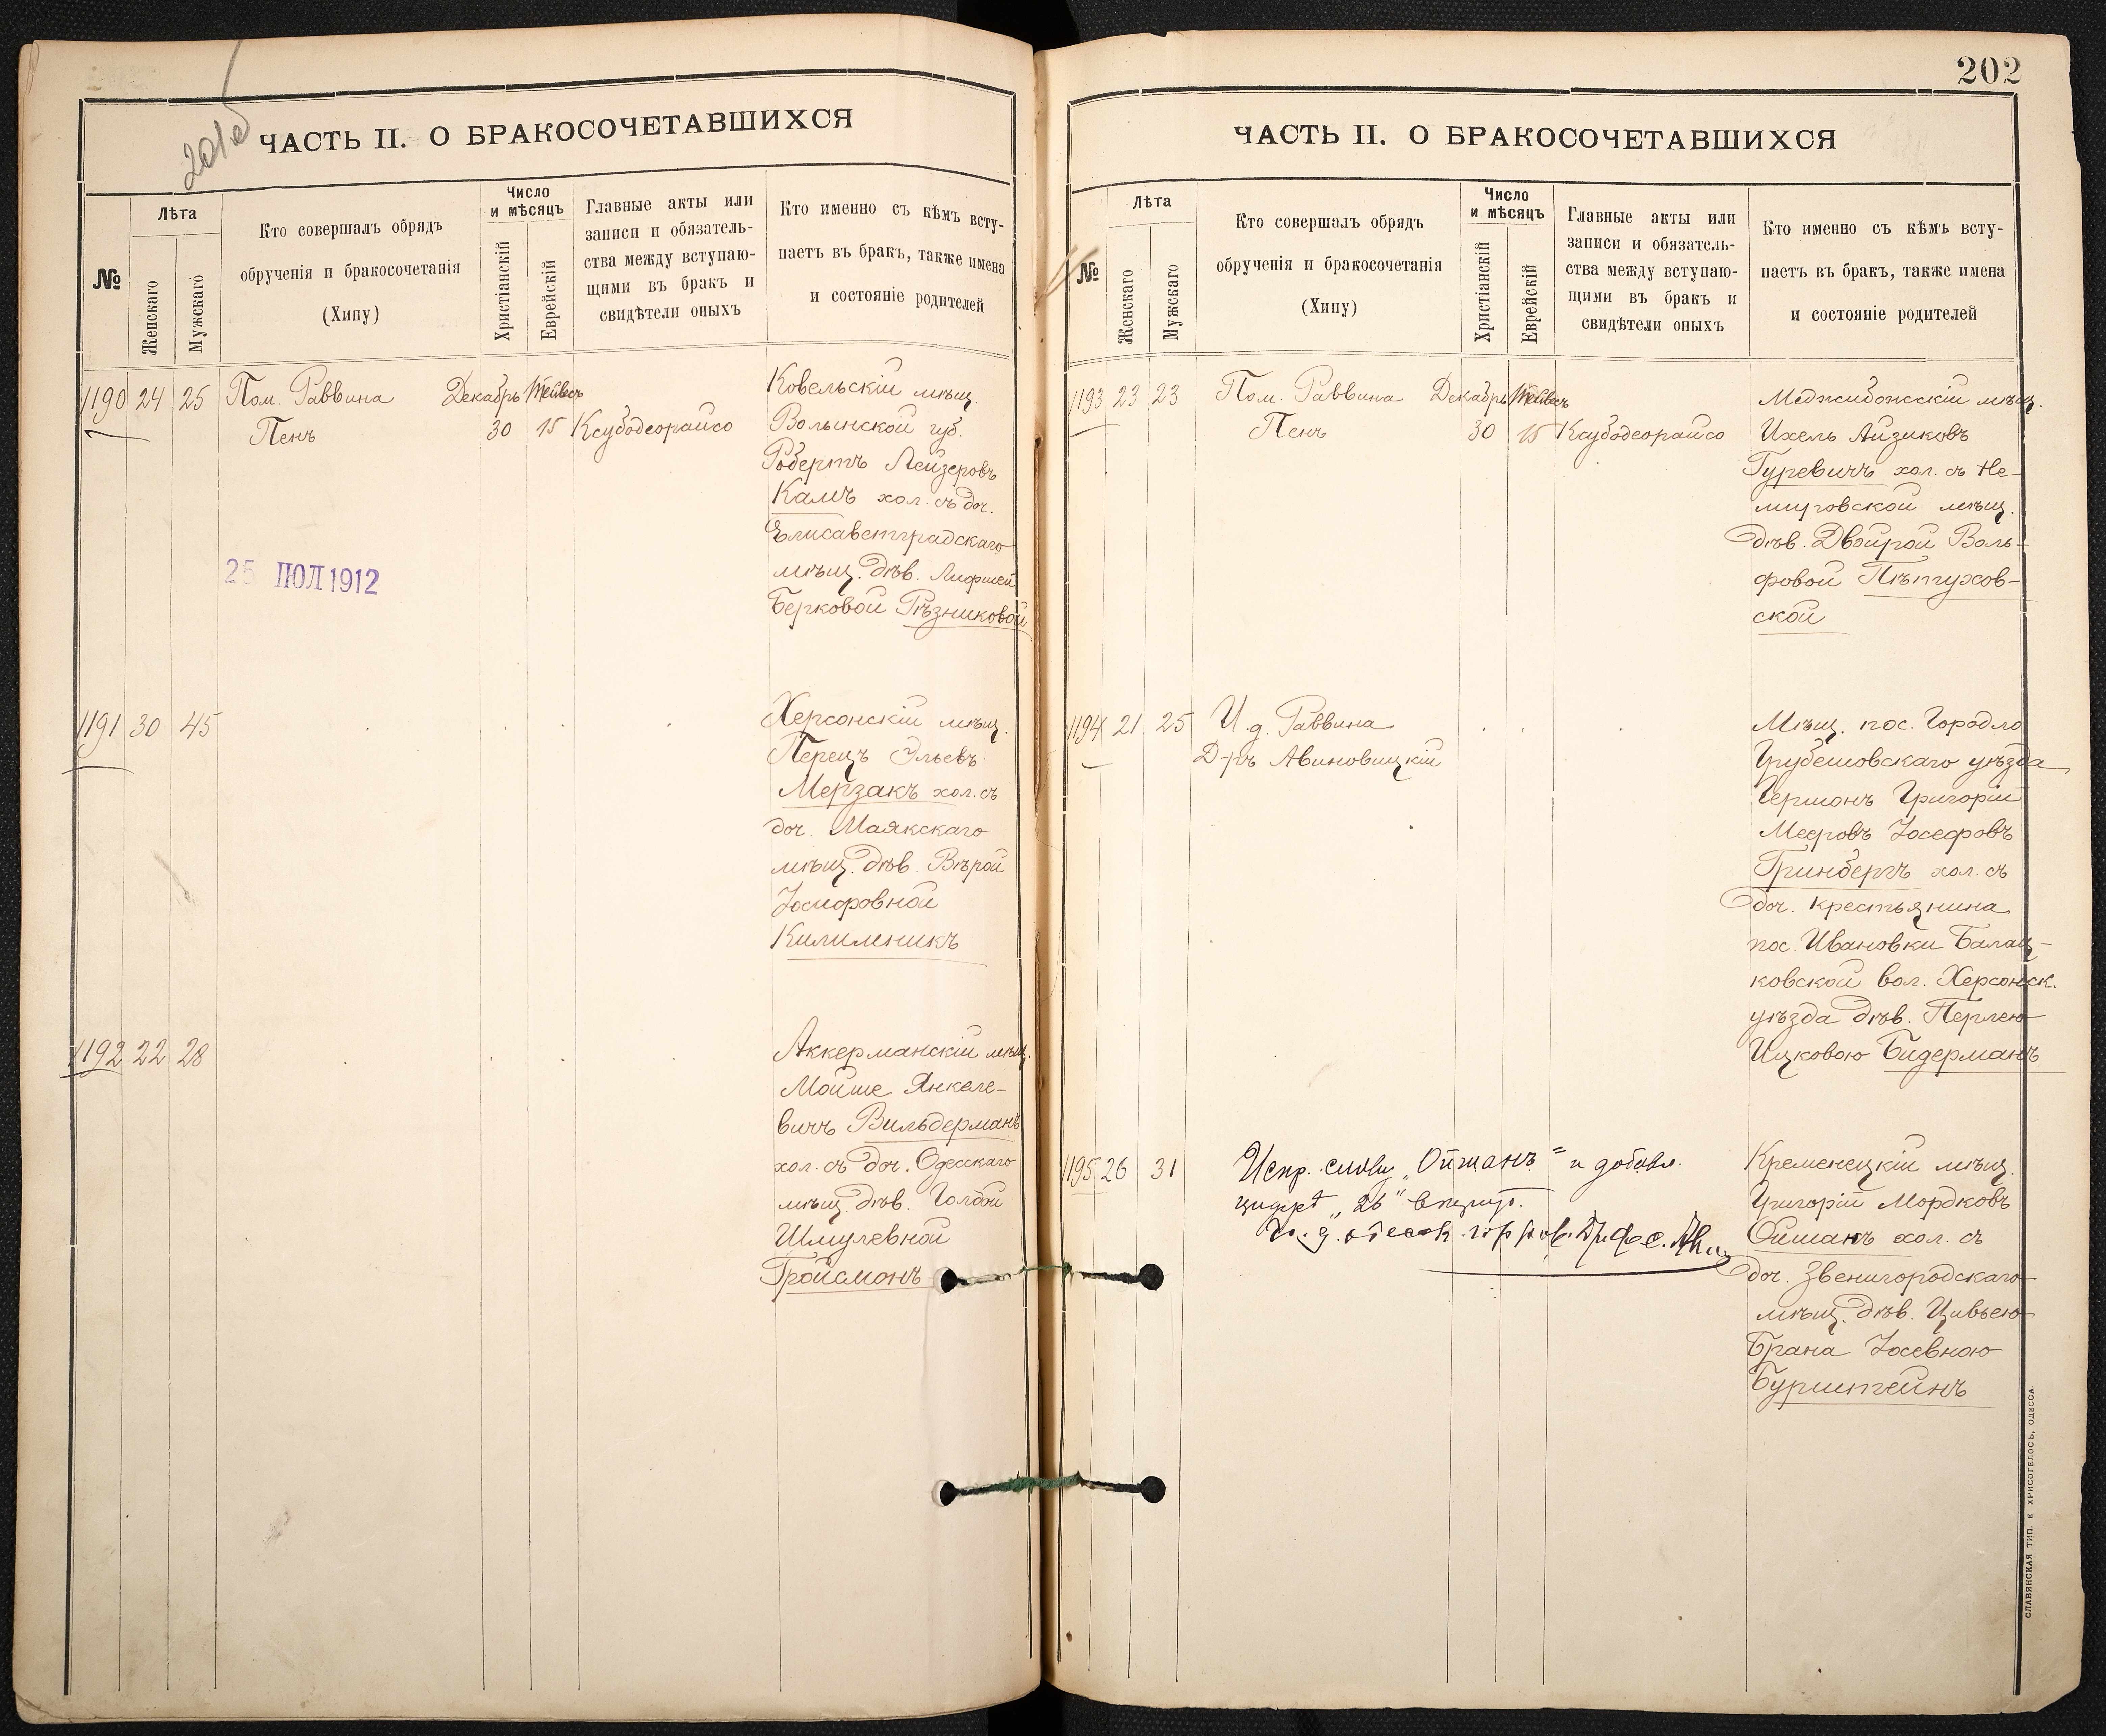 201об
ЧАСТЬ II. О БРАКОСОЧЕТАВШИХСЯ
№
Лѣта
Женскаго
Мужскаго
Кто совершалъ обрядъ
обрученія и бракосочетанія
(Хипу)
Число
и мѣсяцъ
Христіанскій
Еврейскій
Главные акты или
записи и обязатель-
ства между вступаю-
щими въ бракъ и
свидѣтели оныхъ
Кто именно съ кѣмъ всту-
паетъ въ бракъ, также имена
и состояніе родителей
1190 24 25 Пом. Раввина Декабрь Тейвесъ
Пенъ 30 15 Ксубодеорайсо
Ковельскій мѣщ.
Волынской губ.
Робертъ Лейзеровъ
Камъ хол. съ доч.
Елисаветградскаго
мѣщ. дѣв.
Берковой Рѣзниковой
25 ПОЛ 1912
1191 30 45
Херсонскій мѣщ.
Перецъ Эльевъ
Мерзакъ хол. съ
доч. Маякскаго
мѣщ. дѣв. Вѣрой
Іосифовной
Килимникъ
1192 22 28
Аккерманскій мѣщ.
Мойше Янкеле-
вичъ Вильдерманъ
хол. съ доч. Одесскаго
мѣщ. дѣв. Голдой
Шмулевной
Гройсманъ
202
ЧАСТЬ II. О БРАКОСОЧЕТАВШИХСЯ
№
Лѣта
Женскаго
Мужскаго
Кто совершалъ обрядъ
обрученія и бракосочетанія
(Хипу)
Число
и мѣсяцъ
Христіанскій
Еврейскій
Главные акты или
записи и обязатель-
ства между вступаю-
щими въ бракъ и
свидѣтели оныхъ
Кто именно съ кѣмъ всту-
паетъ въ бракъ, также имена
и состояніе родителей
1193 23 23 Пом. Раввина Декабрь Тейвесъ
Пенъ 30 15 Ксубодеорайсо
Меджибожскій мѣщ.
Ихель Айзиковъ
Гуревичъ хол. съ Не-
мировской мѣщ.
дѣв. Двойрой Воль-
фовой Пѣтухов-
ской
1194 21 25 И. д. Раввина
Д-ръ Авиновицкій
Мѣщ. пос. Городло
Грубешовскаго уѣзда
Гершонъ Григорій
Мееровъ Іосефовъ
Гринбергъ хол. съ
доч. крестьянина
пос. Ивановки Балац-
ковской вол. Херсонск.
уѣзда дѣв. Перлею
Ицковою Бидерманъ
1195 26 31
Испр. слову „Ойманъ" и добавл.
цифрѣ „26" вѣрить.
И. д. одесск. гор. рав. Др.
Кременецкій мѣщ.
Григорій Мордковъ
Ойманъ хол. съ
доч. Звенигородскаго
мѣщ. дѣв. Цивьею
Брана Іосевною
Бурштейнъ
СЛАВЯНСКАЯ ТИП. Е. ХРИСОГЕЛОСЪ, ОДЕССА.